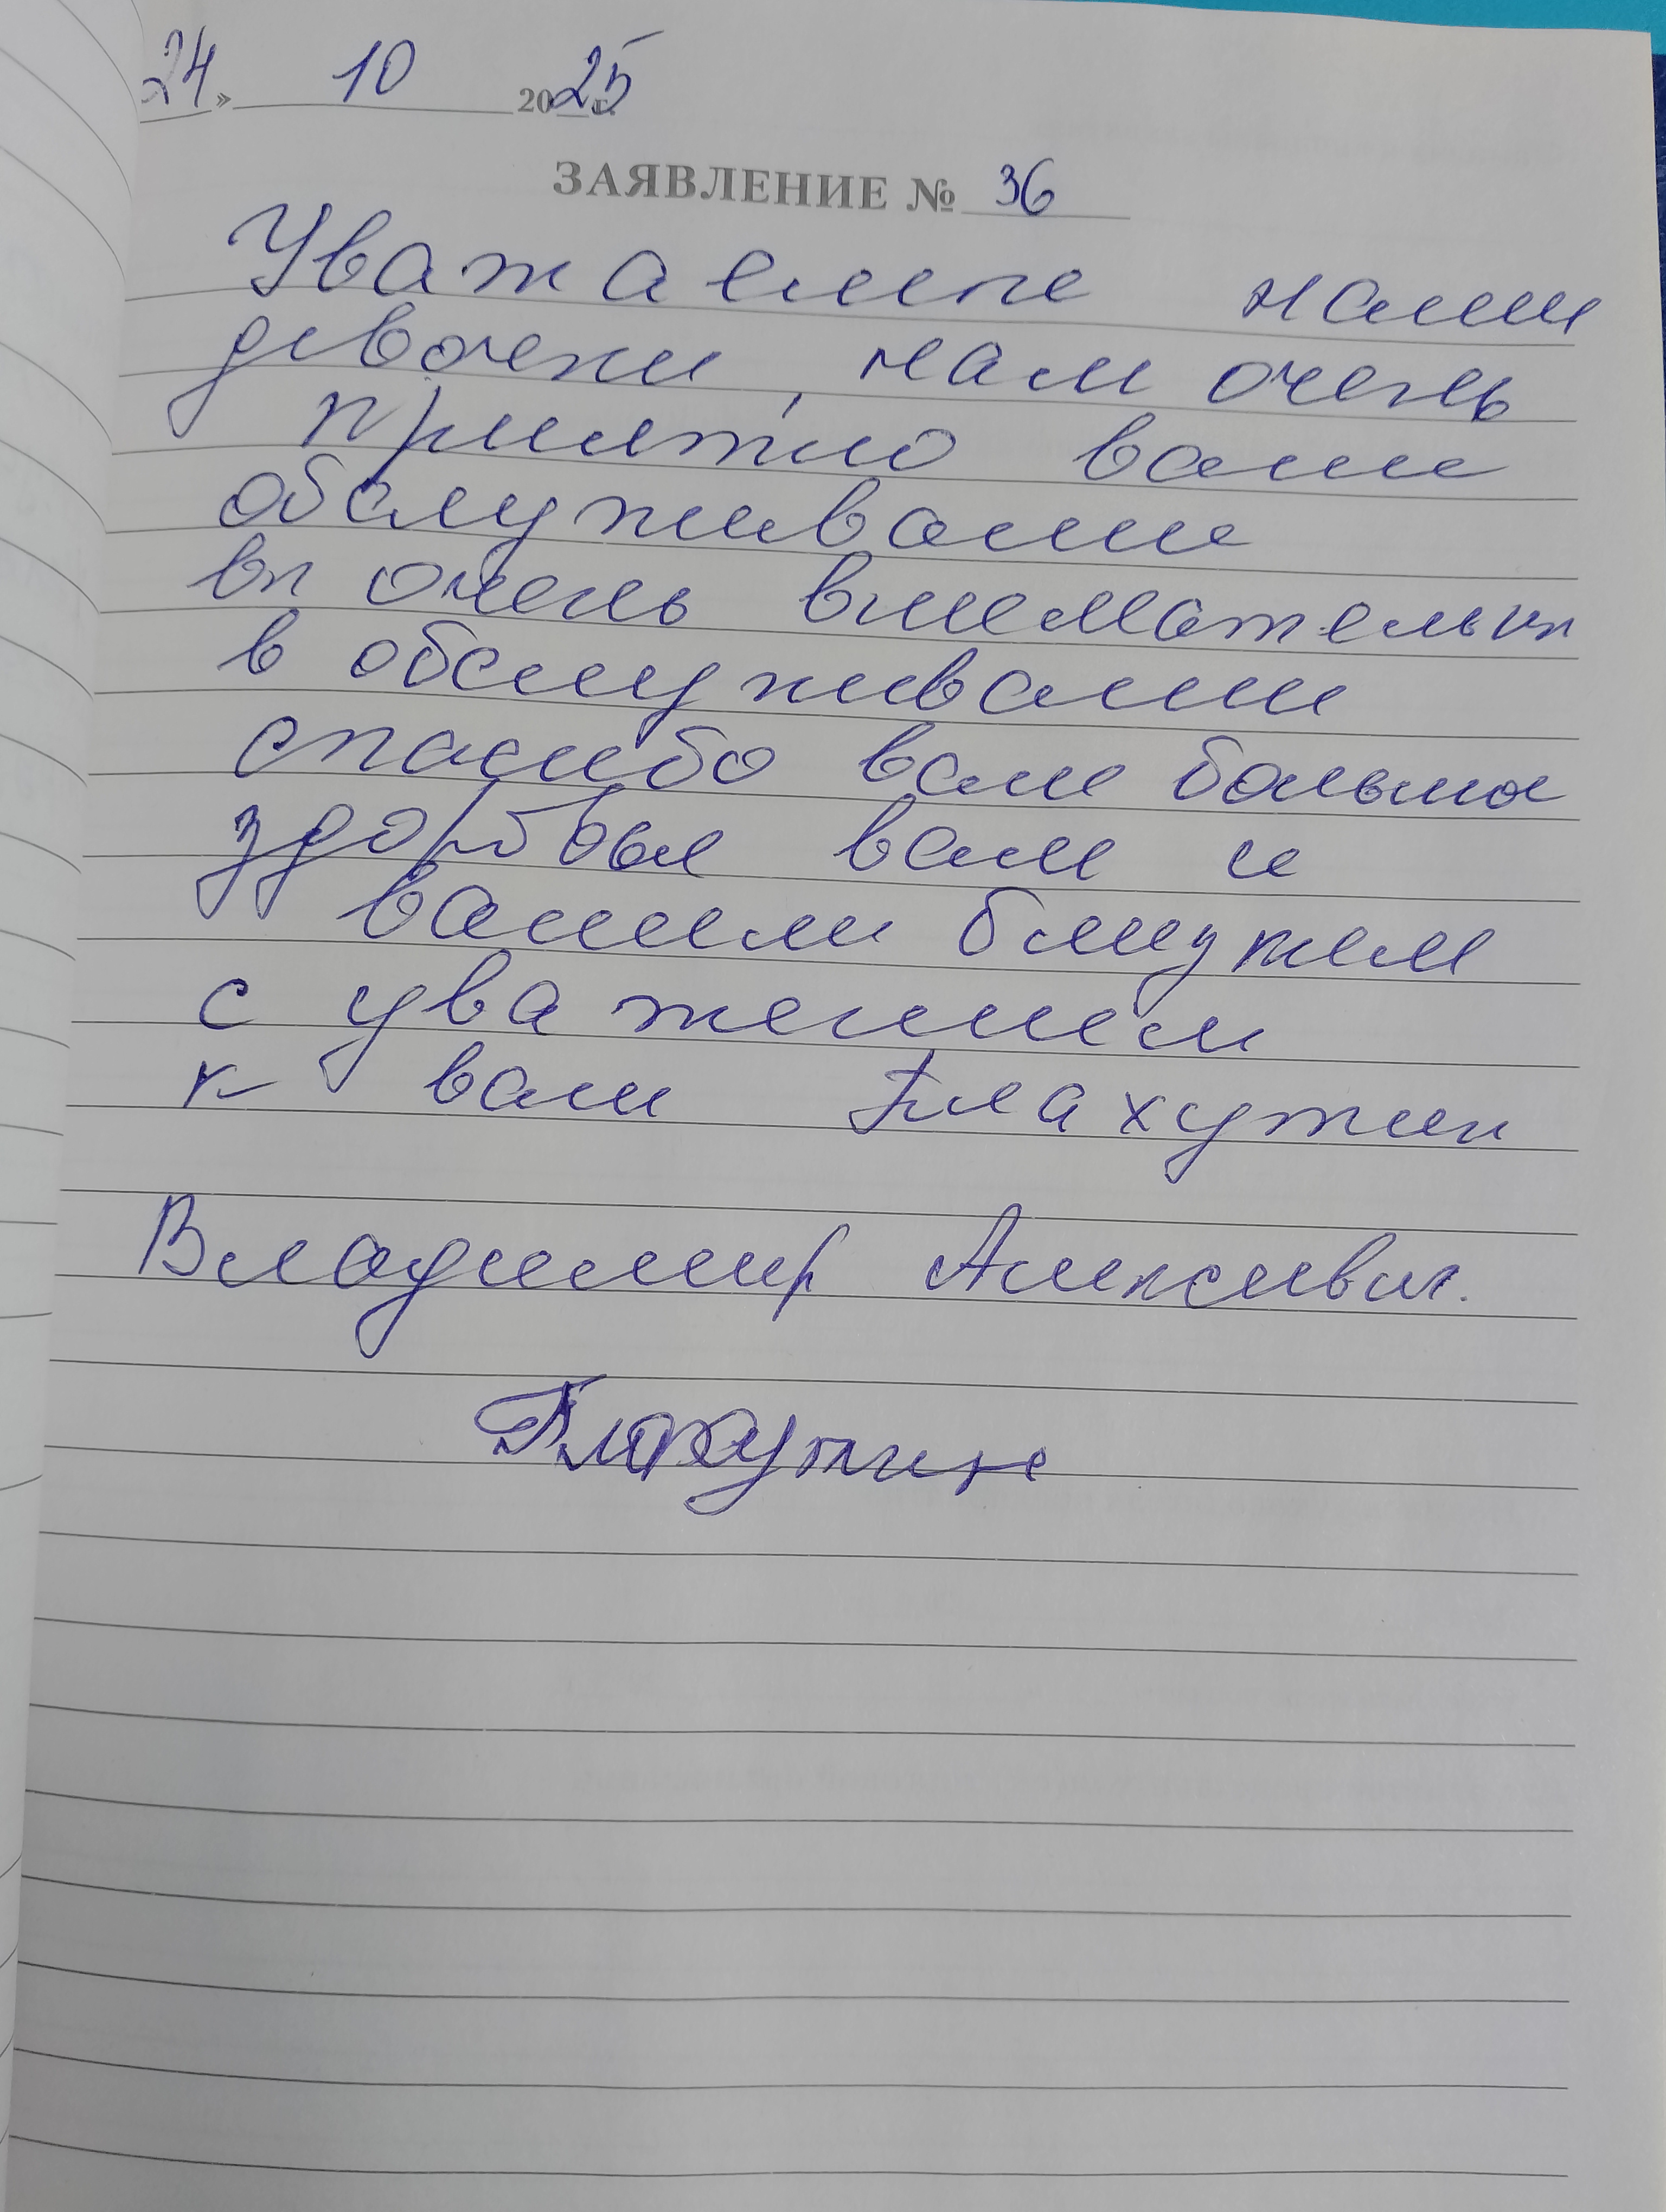 24» 10 2025 г.
ЗАЯВЛЕНИЕ № 36
Уважаемые наши
девочки, нам очень
приятно ваше
обслуживание
вы очень внимательны
в обслуживании
спасибо вам большое
здоровья вам и
вашим близким
с уважением
к вам Плахутин
Владимир Алексеевич.
Плахутин